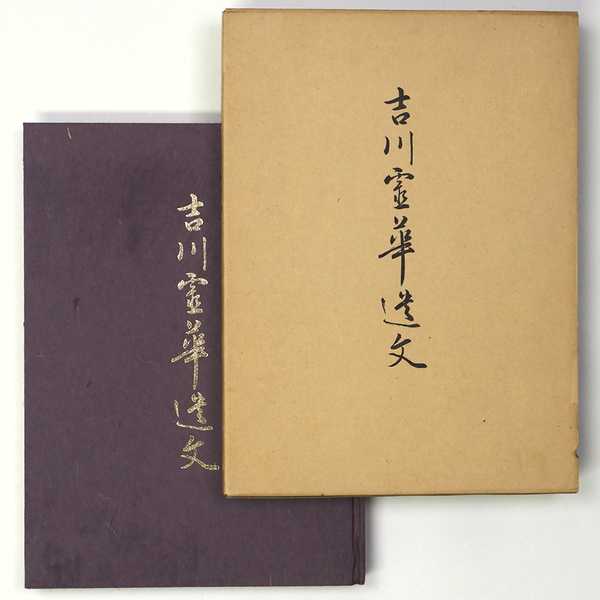 吉川霊華遺文
吉川霊華遺文